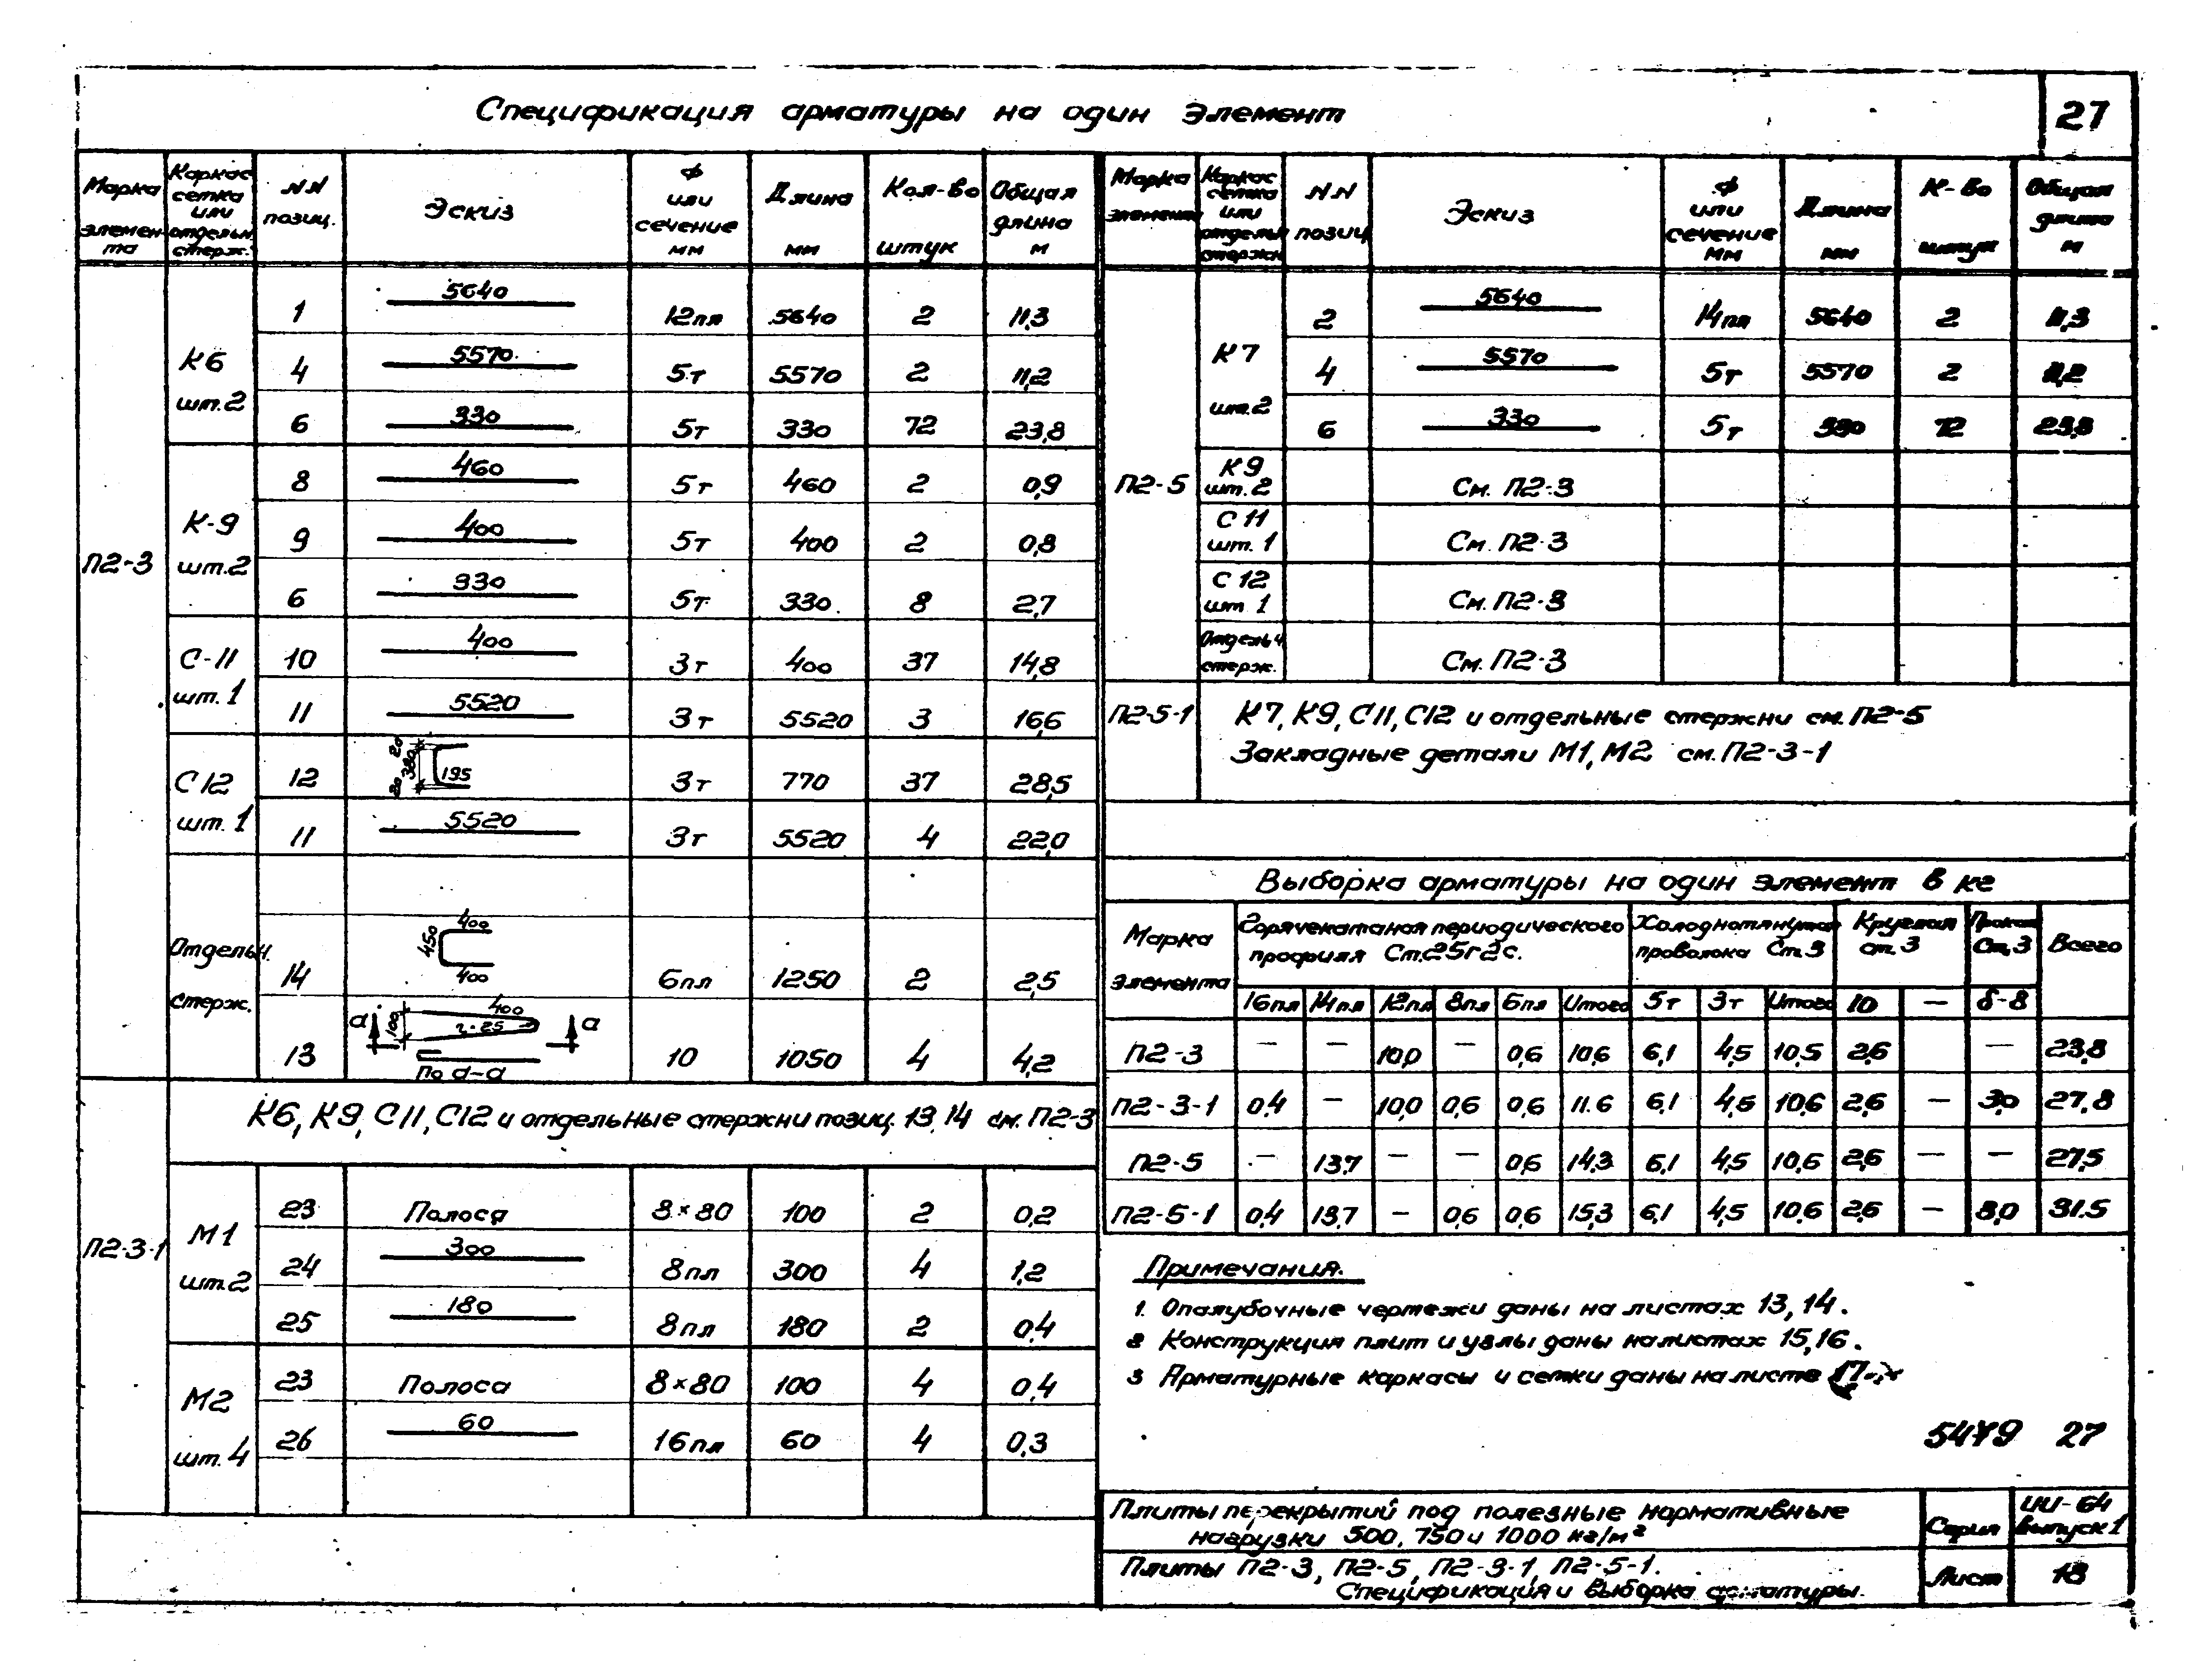 Спецификация арматуры на один элемент
27
Марка элемента | Каркас сетка или отдельн. стерж. | NN позиц. | Эскиз | Ф или сечение мм | Длина мм | Кол-во штук | Общая длина м
П2-3
К6 шт.2
1 | 5640 | 12пл | 5640 | 2 | 11,3
4 | 5570 | 5т | 5570 | 2 | 11,2
6 | 330 | 5т | 330 | 72 | 23,8
К-9 шт.2
8 | 460 | 5т | 460 | 2 | 0,9
9 | 400 | 5т | 400 | 2 | 0,8
6 | 330 | 5т | 330 | 8 | 2,7
С-11 шт.1
10 | 400 | 3т | 400 | 37 | 14,8
11 | 5520 | 3т | 5520 | 3 | 16,6
С12 шт.1
12 | 20 380 20 195 | 3т | 770 | 37 | 28,5
11 | 5520 | 3т | 5520 | 4 | 22,0
Отдельн. стерж.
14 | 400 450 400 | 6пл | 1250 | 2 | 2,5
13 | а 100 400 r=25 а По а-а | 10 | 1050 | 4 | 4,2
П2-3-1
К6, К9, С11, С12 и отдельные стержни позиц. 13,14 см. П2-3
М1 шт.2
23 | Полоса | 8×80 | 100 | 2 | 0,2
24 | 300 | 8пл | 300 | 4 | 1,2
25 | 180 | 8пл | 180 | 2 | 0,4
М2 шт.4
23 | Полоса | 8×80 | 100 | 4 | 0,4
26 | 60 | 16пл | 60 | 4 | 0,3
Марка элемента | Каркас сетка или отдельн стержн | NN позиц | Эскиз | Ф или сечение мм | Длина мм | К-во штук | Общая длина м
П2-5
К7 шт.2
2 | 5640 | 14пл | 5640 | 2 | 11,3
4 | 5570 | 5т | 5570 | 2 | 11,2
6 | 330 | 5т | 330 | 72 | 23,8
К9 шт.2 | См. П2-3
С11 шт.1 | См. П2-3
С12 шт 1 | См. П2-3
Отдельн. стерж. | См. П2-3
П2-5-1
К7, К9, С11, С12 и отдельные стержни см. П2-5
Закладные детали М1, М2 см. П2-3-1
Выборка арматуры на один элемент в кг
Марка элемента | Горячекатаная периодического профиля Ст.25г2с. | Холоднотянутая проволока Ст.3 | Круглая ст.3 | Прокат Ст.3 | Всего
16пл | 14пл | 12пл | 8пл | 6пл | Итого | 5т | 3т | Итого | 10 | — | δ-8
П2-3 | — | — | 10,0 | — | 0,6 | 10,6 | 6,1 | 4,5 | 10,5 | 2,6 | | — | 23,8
П2-3-1 | 0,4 | — | 10,0 | 0,6 | 0,6 | 11.6 | 6,1 | 4,5 | 10,6 | 2,6 | — | 3,0 | 27,8
П2-5 | — | 13,7 | — | — | 0,6 | 14,3 | 6,1 | 4,5 | 10,6 | 2,6 | — | — | 27,5
П2-5-1 | 0,4 | 13,7 | — | 0,6 | 0,6 | 15,3 | 6,1 | 4,5 | 10,6 | 2,6 | — | 3,0 | 31.5
Примечания.
1. Опалубочные чертежи даны на листах 13, 14.
2 Конструкция плит и узлы даны на листах 15, 16.
3 Арматурные каркасы и сетки даны на листе 17
5479 27
Плиты перекрытий под полезные нормативные
нагрузки 500, 750 и 1000 кг/м²
Серия
ИИ-64
Выпуск 1
Плиты П2-3, П2-5, П2-3-1, П2-5-1.
Спецификация и выборка арматуры.
Лист
18